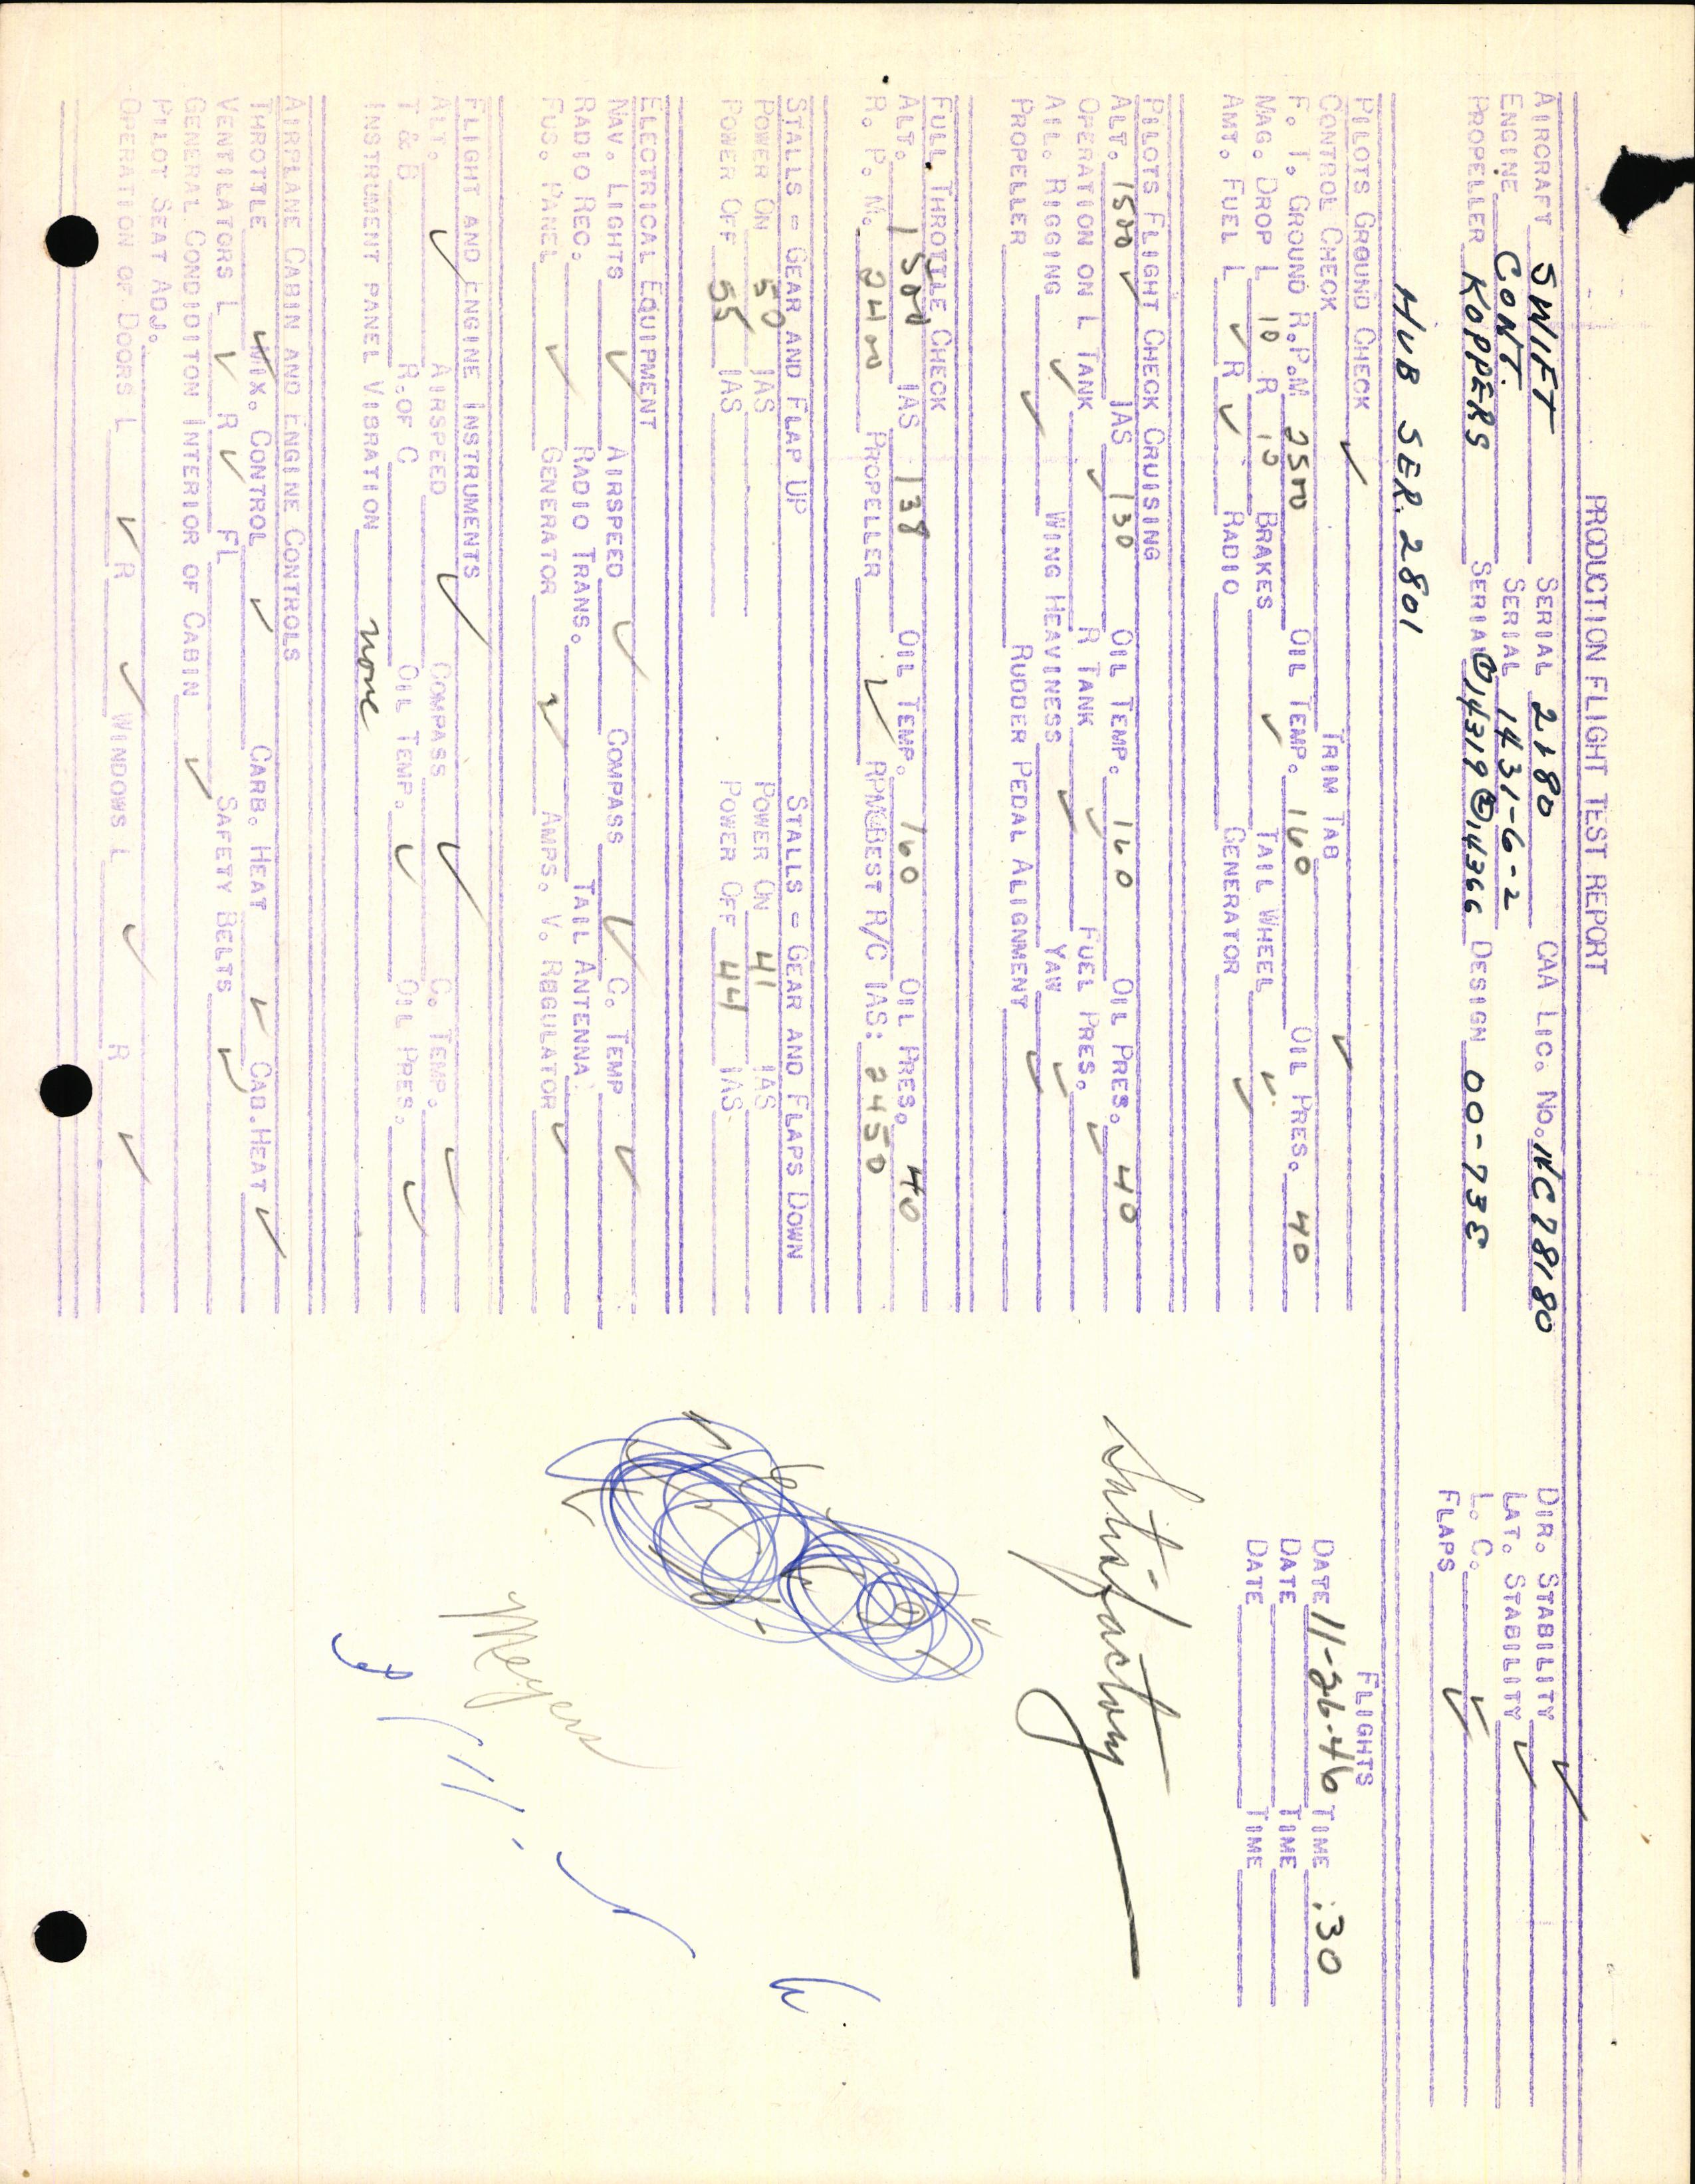 PRODUCTION FLIGHT TEST REPORT
AIRCRAFT SWIFT SERIAL 2180 CAA LIC. NO. NC78180 DIR. STABILITY ✓
ENGINE CONT. SERIAL 1431-6-2 LAT. STABILITY ✓
PROPELLER KOPPERS SERIAL ①14319 ②14366 DESIGN 00-73E L. C. ✓
FLAPS ✓
HUB SER. 2801
PILOTS GROUND CHECK FLIGHTS
CONTROL CHECK ✓ TRIM TAB ✓ DATE 11-26-46 TIME :30
F. T. GROUND R.P.M 2500 OIL TEMP. 160 OIL PRES. 40 DATE TIME
MAG. DROP L 10 R 10 BRAKES ✓ TAIL WHEEL ✓ DATE TIME
AMT. FUEL L ✓ R ✓ RADIO GENERATOR ✓
PILOTS FLIGHT CHECK CRUISING
ALT. 1500 ✓ IAS 130 OIL TEMP. 160 OIL PRES. 40
OPERATION ON L TANK ✓ R TANK ✓ FUEL PRES. ✓
AIL. RIGGING ✓ WING HEAVINESS ✓ YAW ✓
PROPELLER ✓ RUDDER PEDAL ALIGNMENT ✓
Satisfactory
FULL THROTTLE CHECK
ALT. 1500 IAS 138 OIL TEMP. 160 OIL PRES. 40
R. P. M. 2400 PROPELLER ✓ RPM@BEST R/C IAS: 2450
STALLS = GEAR AND FLAP UP STALLS = GEAR AND FLAPS DOWN
POWER ON 50 IAS POWER ON 41 IAS
POWER OFF 55 IAS POWER OFF 44 IAS
ELECTRICAL EQUIPMENT
NAV. LIGHTS ✓ AIRSPEED ✓ COMPASS ✓ C. TEMP ✓
RADIO REC. RADIO TRANS. TAIL ANTENNA
FUS. PANEL ✓ GENERATOR ✓ AMPS. V. REGULATOR ✓
Meyers
FLIGHT AND ENGINE INSTRUMENTS
ALT. ✓ AIRSPEED ✓ COMPASS ✓ C. TEMP. ✓
T & B R. OF C OIL TEMP. ✓ OIL PRES. ✓
INSTRUMENT PANEL VIBRATION none
AIRPLANE CABIN AND ENGINE CONTROLS
THROTTLE ✓ MIX. CONTROL ✓ CARB. HEAT ✓ CAB. HEAT ✓
VENTILATORS L ✓ R ✓ FL SAFETY BELTS ✓
GENERAL CONDIDITON INTERIOR OF CABIN ✓
PILOT SEAT ADJ.
OPERATION OF DOORS L ✓ R ✓ WINDOWS L ✓ R ✓